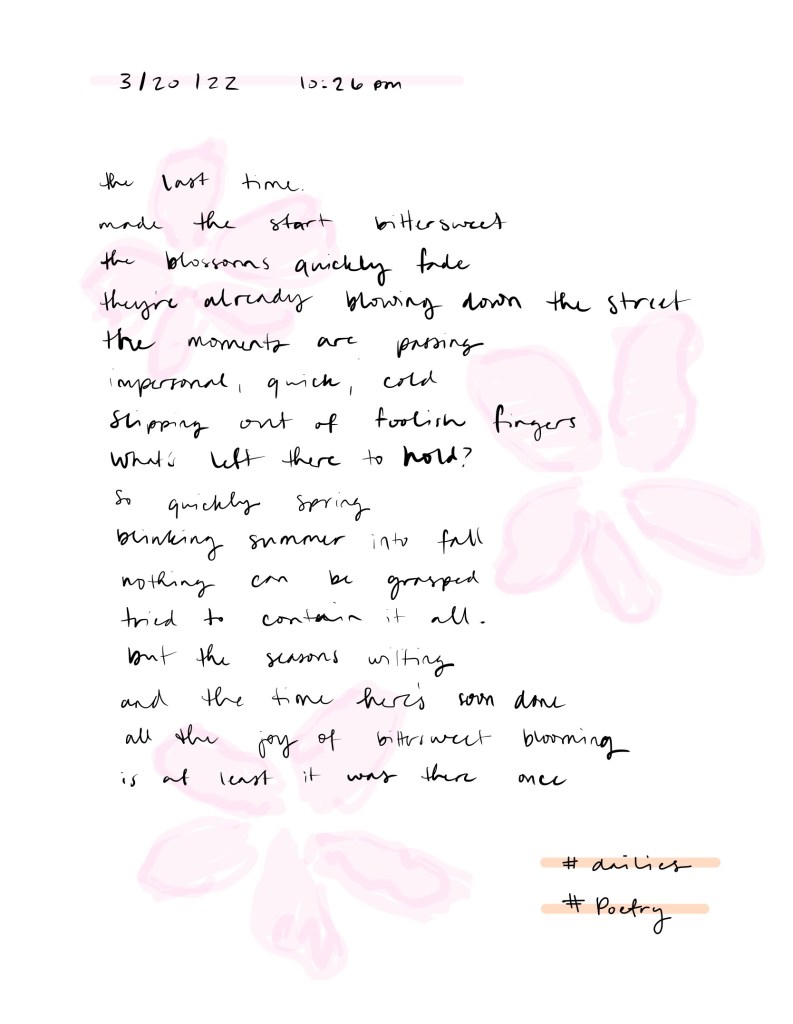 3/20/22 10:26 pm
the last time.
made the start bittersweet
the blossoms quickly fade
they're already blowing down the street
the moments are passing
impersonal, quick, cold
slipping out of foolish fingers
what's left there to hold?
so quickly spring
blinking summer into fall
nothing can be grasped
tried to contain it all.
but the seasons wilting
and the time here's soon done
all the joy of bittersweet blooming
is at least it was there once
# dailies
# Poetry